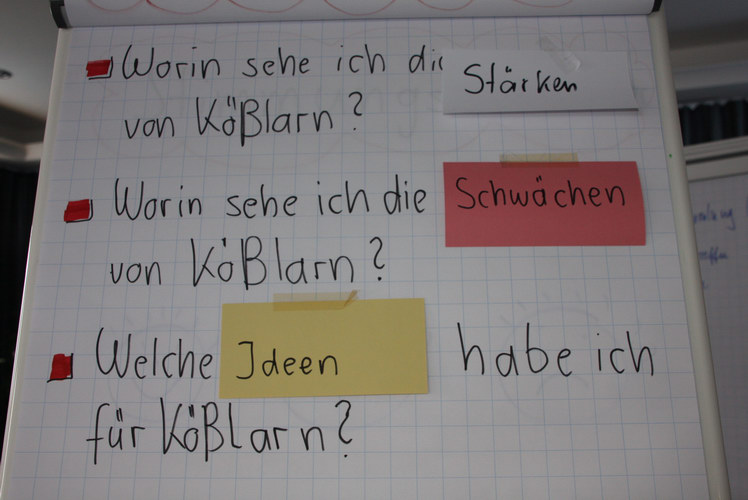 Worin sehe ich die Stärken
von Kößlarn?
Worin sehe ich die Schwächen
von Kößlarn?
Welche Ideen habe ich
für Kößlarn?